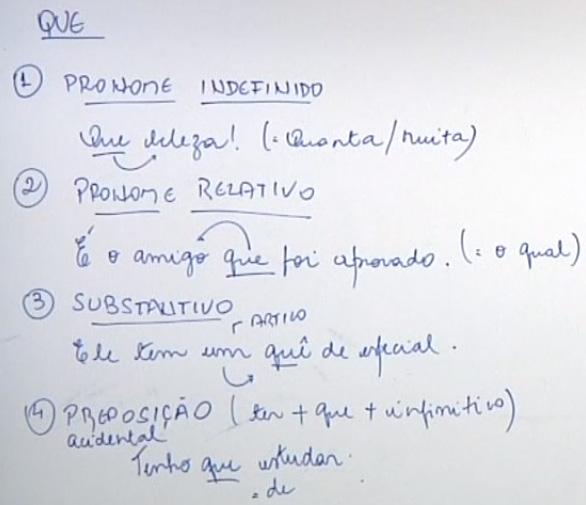 QUE
① PRONOME INDEFINIDO
Que beleza! (= Quanta/muita)
② PRONOME RELATIVO
É o amigo que foi aprovado. (= o qual)
③ SUBSTANTIVO
ARTIGO
Ele tem um quê de especial.
④ PREPOSIÇÃO (ter + que + infinitivo)
acidental
Tenho que estudar.
= de